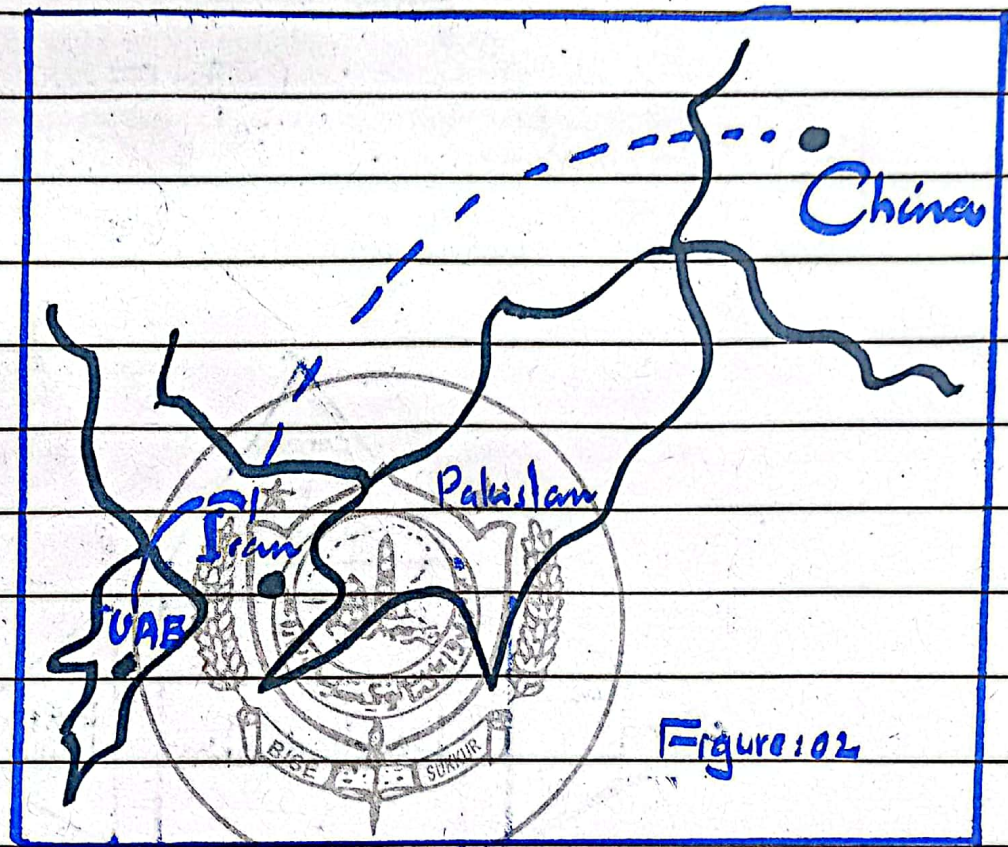 China
Pakistan
Iran
UAE
BISE SUKKUR
Figure:02